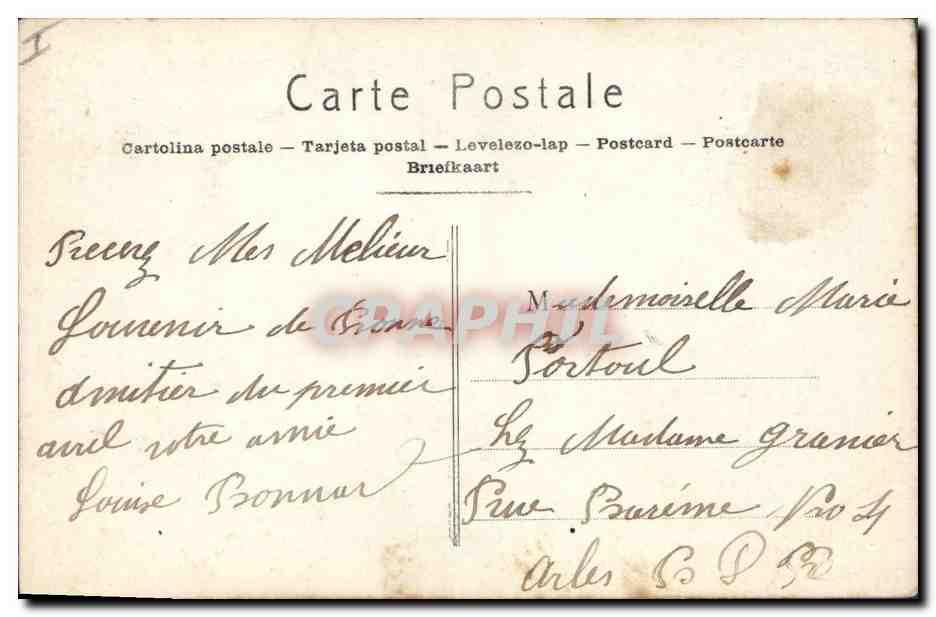 I
Carte Postale
Cartolina postale — Tarjeta postal — Levelezo-lap — Postcard — Postcarte
Briefkaart
Recevez Mes Melieur
Souvenir de Bonne
amitier du premier
avril votre amie
Louise Bonnar
Mademoiselle Marie
Portoul
chez Madame Granier
Rue Baréme No 4
Arles B D R
CPAPHIL